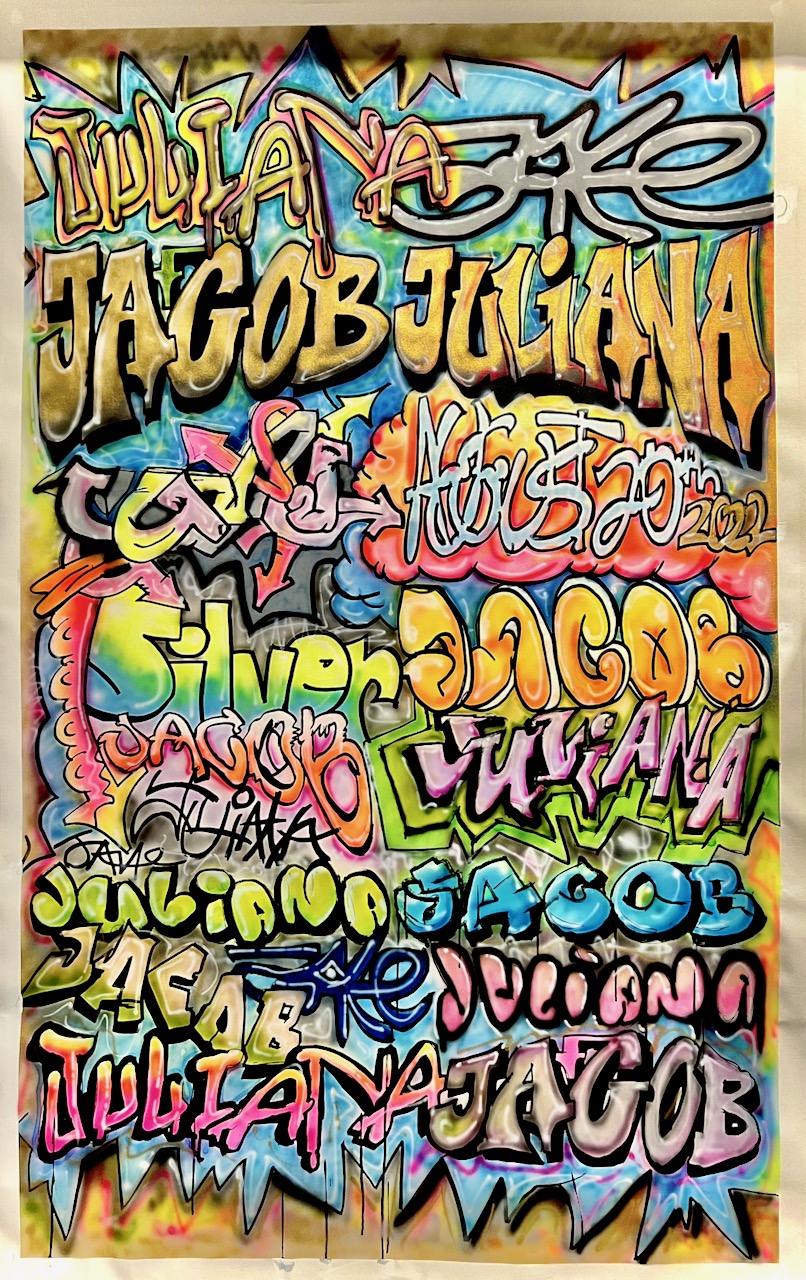 JULIANA JAKE
JACOB JULiANA
AUGUST 20th 2022
Silver JACOB
JACOB JULiANA
JULiANA
JULiANA JACOB
JACOB JAKE JULiANA
JULIANA JACOB